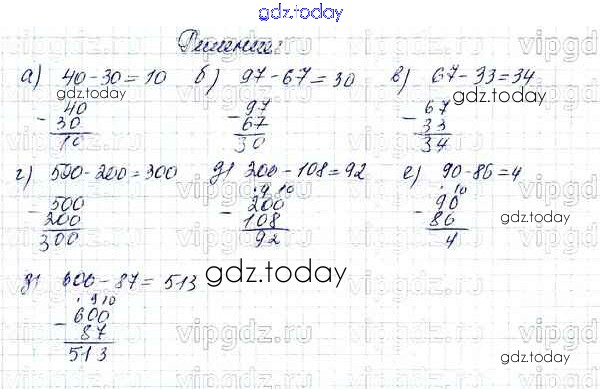 gdz.today
Решение:
а) 40-30=10 б) 97-67=30 в) 67-33=34
gdz.today
- 40 - 97 - 67
30 67 33
10 30 34
г) 500-200=300 д) 200-108=92 е) 90-86=4
. 9 10 . 10
- 500 - 200 - 90
200 108 86
300 92 4
gdz.today
д) 600-87=513
gdz.today
. 9 10
- 600
87
513
gdz.today
vipgdz.ru